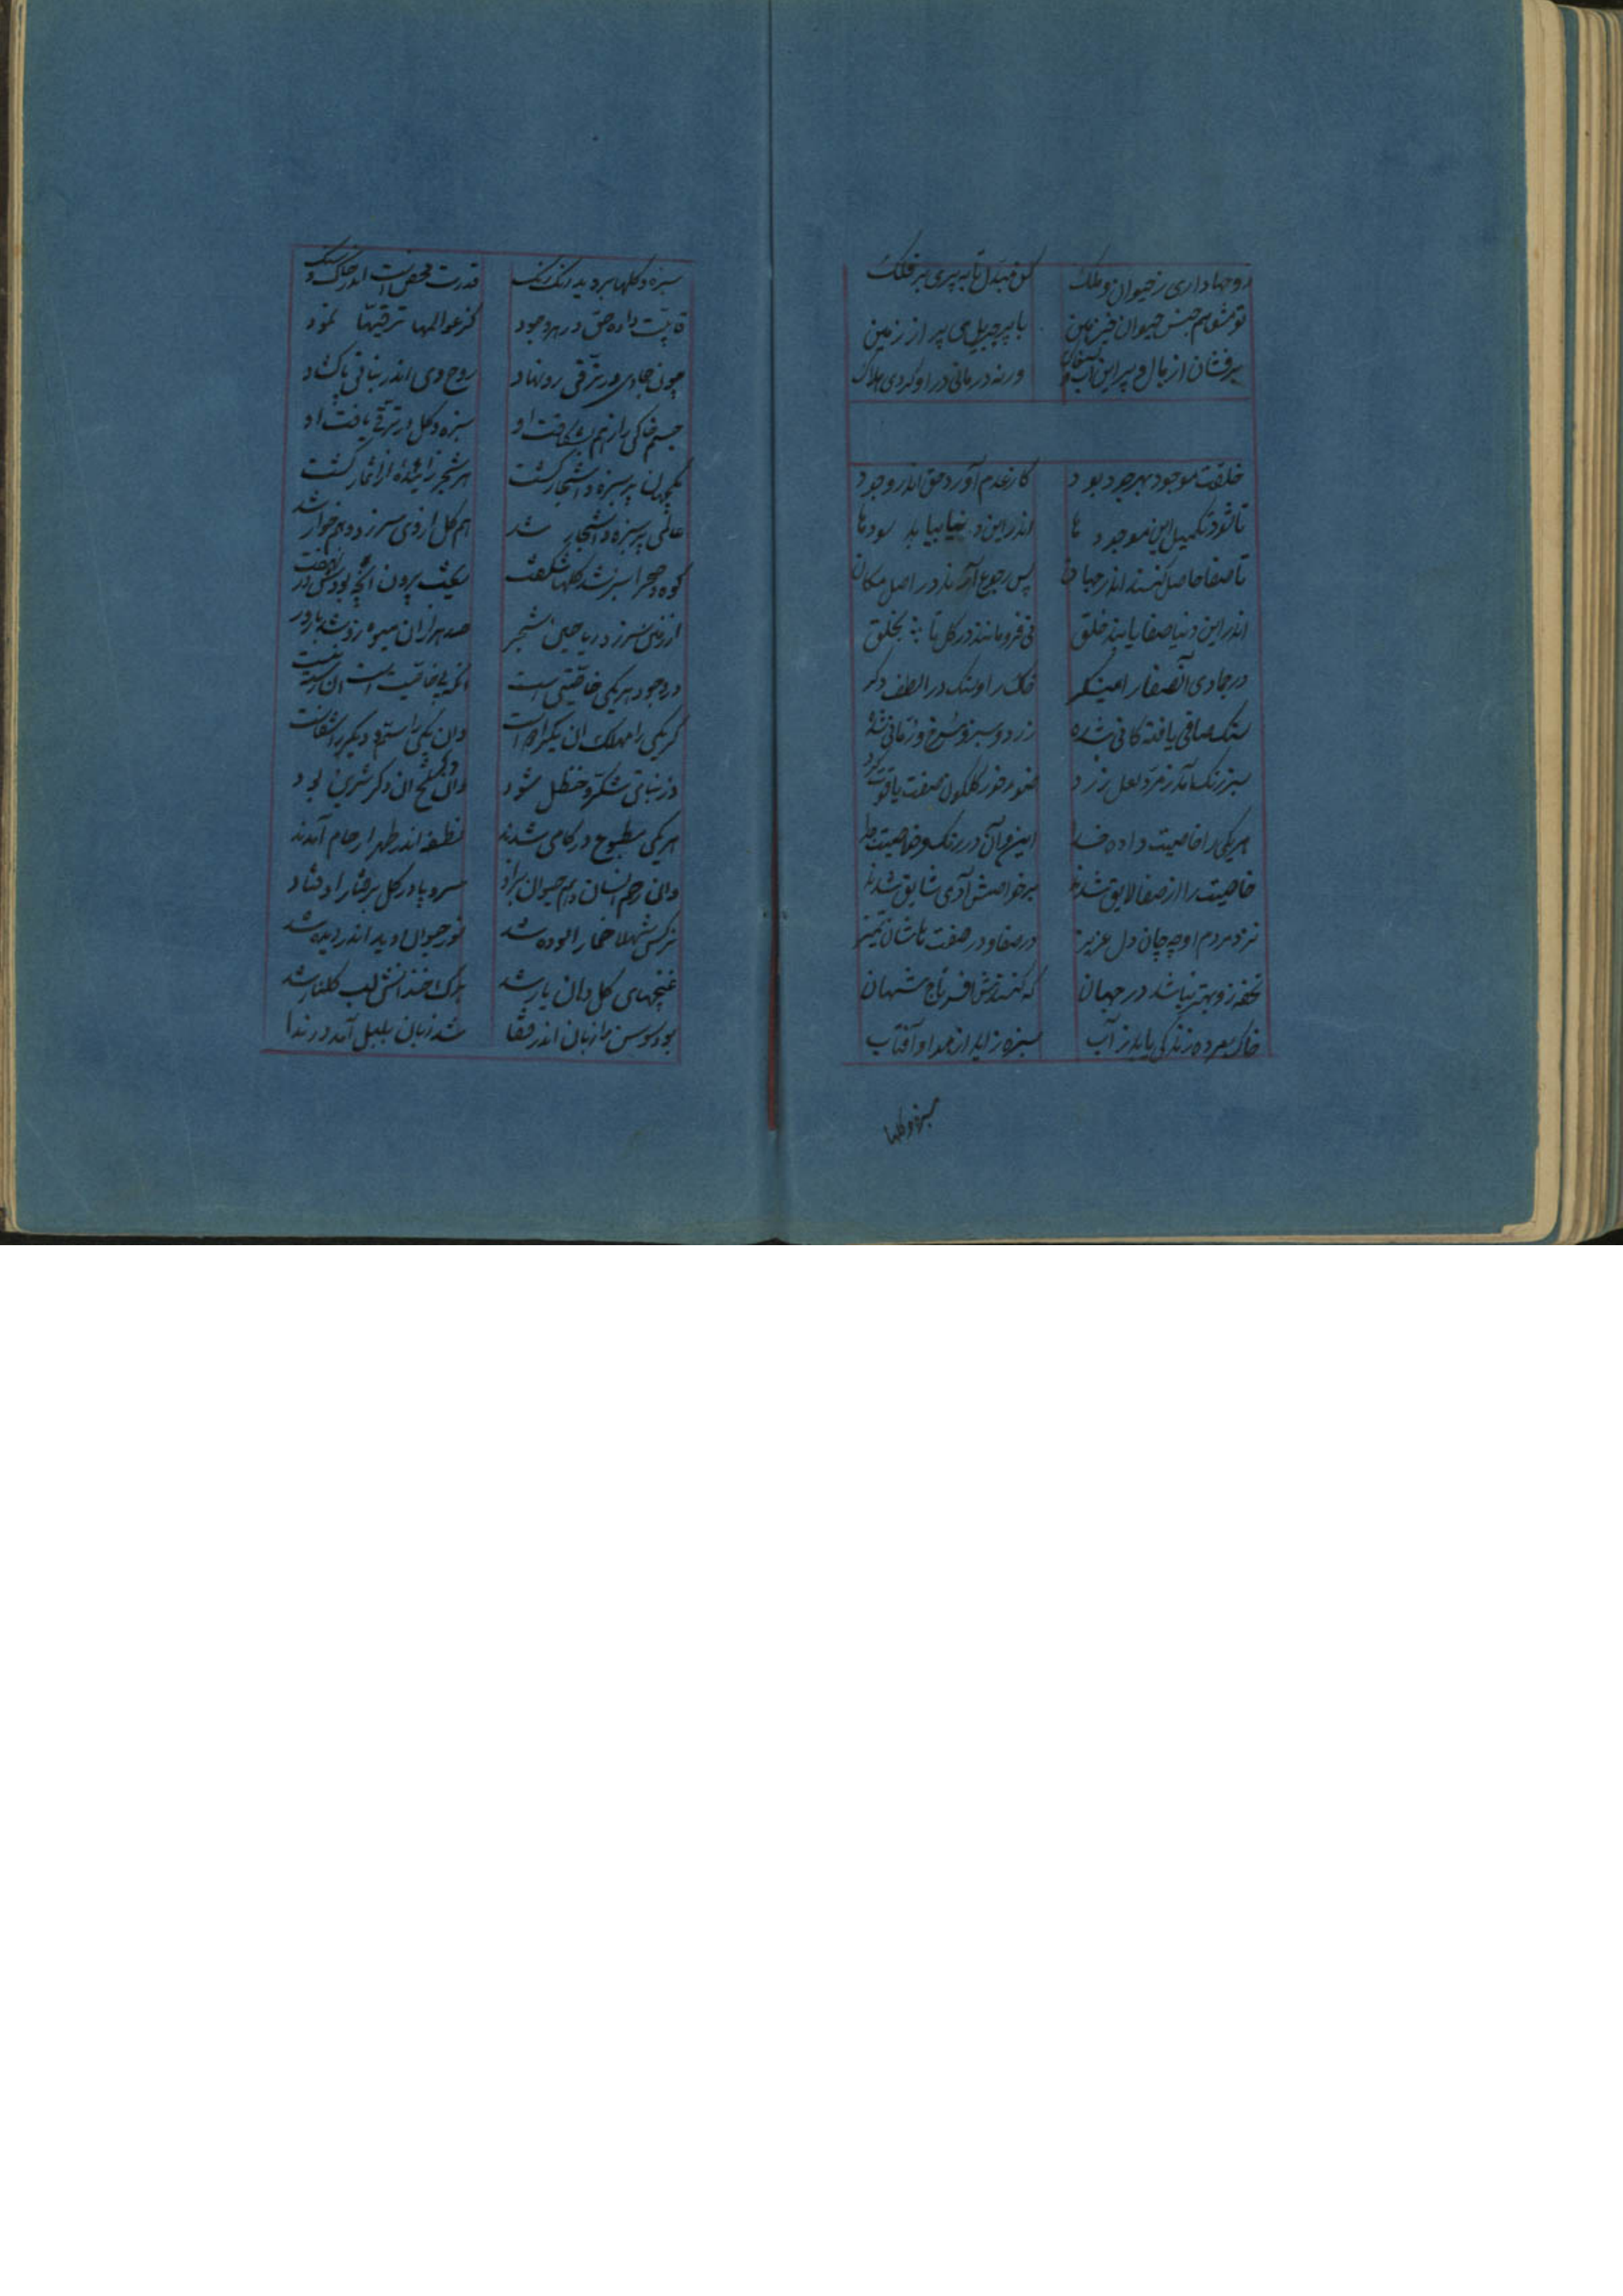 روحها داری ز حیوان و ملک کن مبدل تا بپری بر فلک
تو مشو هم جنس حیوان در زمین با پر جبریل می پر از زمین
پرفشان از بال و پر این آب ورنه درمانی در او کردی هلاک
خلقت موجود بهر جود بود کز عدم آورد حق اندر وجود
تا شود تکمیل این موجود ها اندر این دنیا بیابد سودها
تا صفا حاصل کنند اندر جهان پس رجوع آرند در اصل مکان
اندر این دنیا صفا یابند خلق فرومانند در کل تا بحلق
در جمادی آن صفا را مینکر خاک را و سنک در الطف دکر
سنک صافی یافته کانی شده زرد و سبز و سرخ و رمانی شده
سبز رنک آمد زمرد لعل زرد کلکون صفت یاقوت کرد
هریکی را خاصیت داده خدا این و آن در رنک و خاصیت
خاصیت را از صفا لایق شدند بر خواهش آدمی شایق شدند
نزد مردم او چه جان دل عزیز در صفا و در صفت باشان تمیز
تحفه زو بهتر نباشد در جهان که کنندش افسر تاج شهان
خاک مرده زندکی یابد ز آب سبزه زاید از هوا و آفتاب
سبزه و کلها
سبزه و کلها بروید رنک رنک قدرت محض است اندر خاک و سنک
داده حق در هر وجود کز عوالمها ترقیها نمود
چون جمادی در ترقی رو نهاد روح وی اندر نباتی پا کشاد
جسم خاکی را ز هم بشکافت او سبزه و کل در ترقی یافت او
پر سبزه و اشجار کشت هر شجر زاینده از اثمار کشت
عالمی پر سبزه و اشجار شد هم کل از وی سر زد و هم خوار شد
کوه و صحرا سبز شد کلها شکفت بیرون آنچه بودش در نهفت
از زمین سر زد ریاحین شجر صد هزاران میوه زو شد بارور
در وجود هر یکی خاصیتی است آنکه بی خاصیت است آن نیست
کر یکی را مهلک آن یکرا دواست وان یکی را سم و دیکر را شفاست
در نباتی شکر و حنظل شود وان یکی تلخ آن دکر شیرین بود
هر یکی مطبوع در کامی شدند نطفه اندر طهر ارحام آمدند
وانی رحم انسان و هم حیوان بزاد سرو پا در کل برفتار اوفتاد
نرکس شهلا خمار آلوده شد نور حیوان اندر دیده شد
غنچهای کل دهان یار شد برک خندانش لب کلنار شد
بود سوسن را زبان اندر قفا شد زبان بلبل آمد در ندا